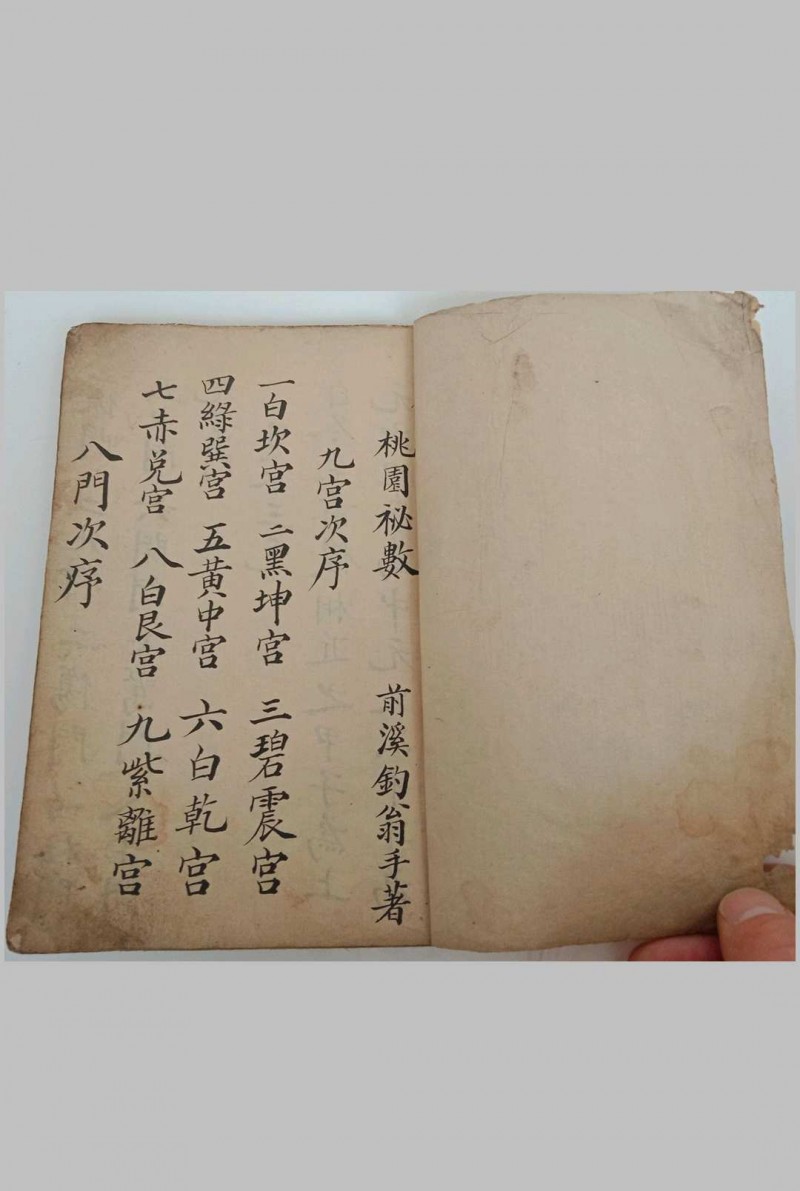 桃園祕數　前溪釣翁手著
九宮次序
一白坎宮　二黑坤宮　三碧震宮
四綠巽宮　五黃中宮　六白乾宮
七赤兌宮　八白艮宮　九紫離宮
八門次序